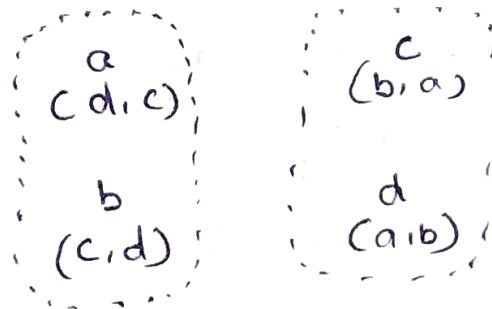 a
(d,c)
b
(c,d)
c
(b,a)
d
(a,b)